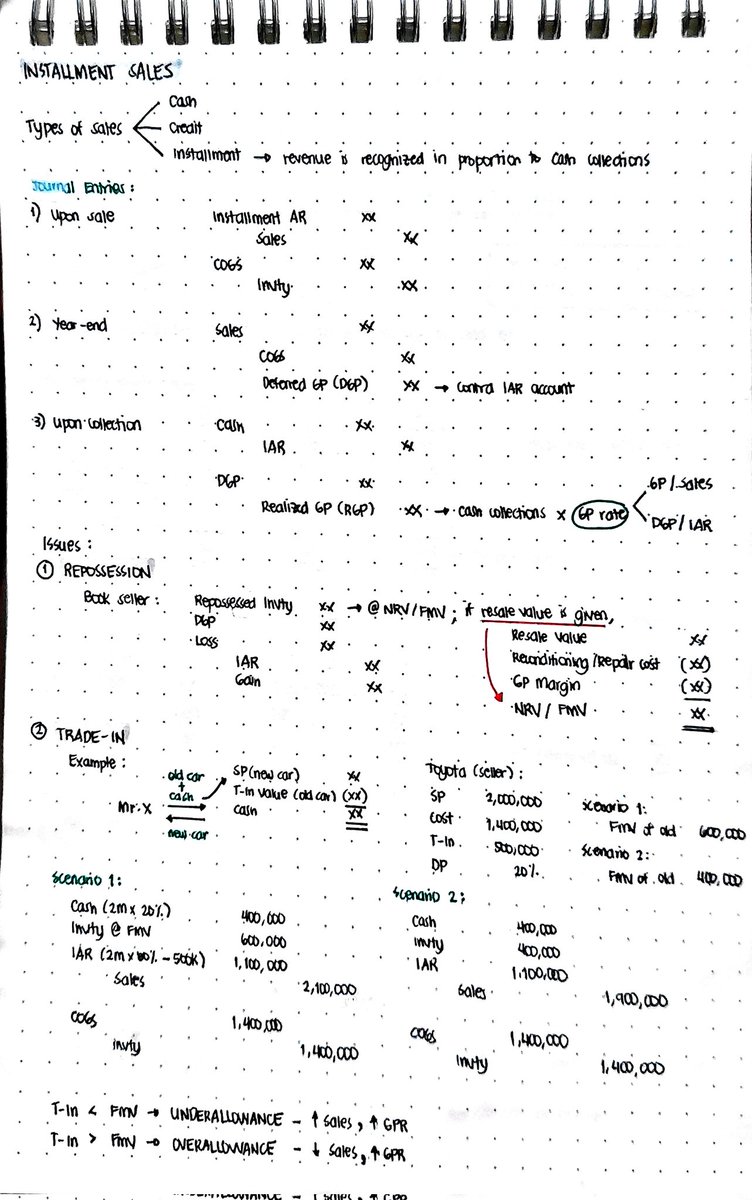 INSTALLMENT SALES
Types of sales
Cash
Credit
Installment → revenue is recognized in proportion to cash collections
Journal Entries:
1) Upon sale Installment AR xx
Sales xx
COGS xx
Invty. xx
2) Year-end Sales xx
COGS xx
Deferred GP (DGP) xx → contra IAR account
3) Upon collection Cash xx
IAR xx
DGP xx
Realized GP (RGP) xx → cash collections x GP rate
GP / Sales
DGP / IAR
Issues:
① REPOSSESSION
Book seller: Repossessed Invty xx → @ NRV/FMV; if resale value is given,
DGP xx
Loss xx
IAR xx
Gain xx
Resale value xx
Reconditioning/Repair cost (xx)
GP margin (xx)
NRV / FMV xx
② TRADE-IN
Example:
Mr. X
old car
+
cash
new car
SP (new car) xx
T-In value (old car) (xx)
cash xx
Toyota (seller):
SP 2,000,000
Cost 1,400,000
T-In 500,000
DP 20%
Scenario 1:
FMV of old 600,000
Scenario 2:
FMV of old 400,000
Scenario 1:
Cash (2m x 20%) 400,000
Invty @ FMV 600,000
IAR (2m x 80% - 500k) 1,100,000
Sales 2,100,000
COGS 1,400,000
Invty 1,400,000
Scenario 2:
Cash 400,000
Invty 400,000
IAR 1,100,000
Sales 1,900,000
COGS 1,400,000
Invty 1,400,000
T-In < FMV → UNDERALLOWANCE - ↑ Sales, ↑ GPR
T-In > FMV → OVERALLOWANCE - ↓ Sales, ↑ GPR